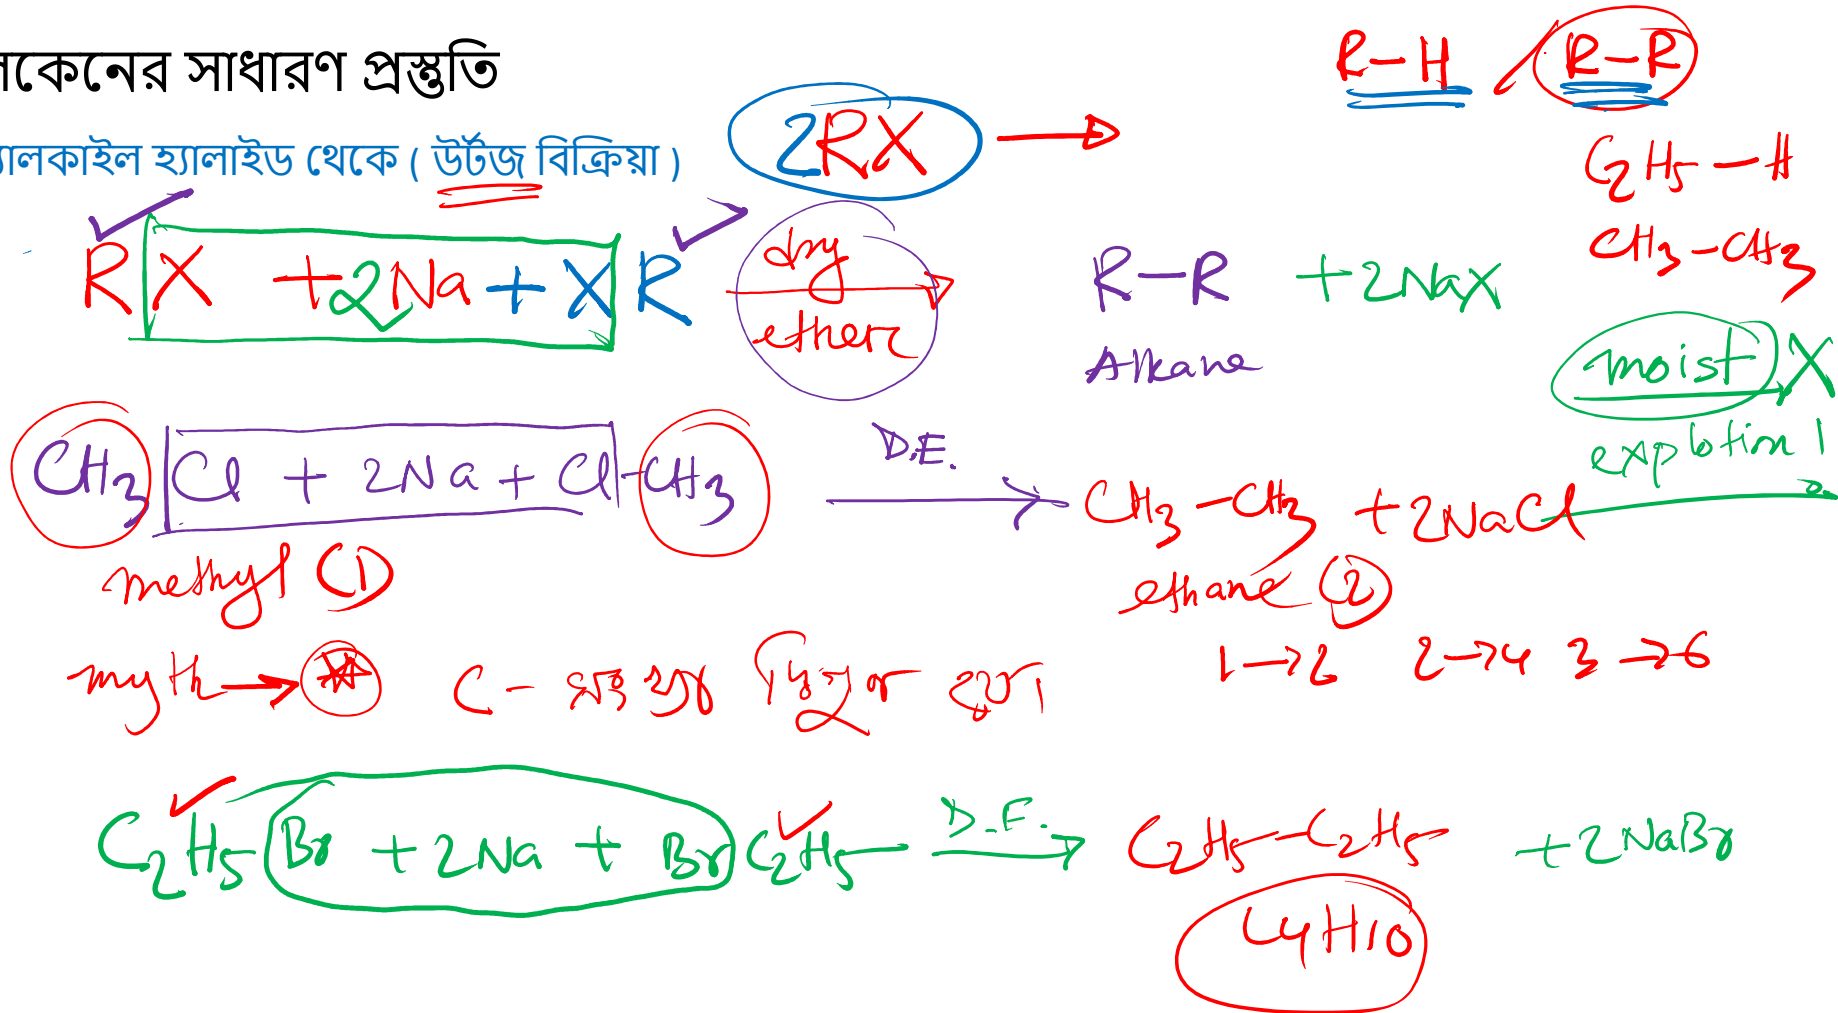 লকেনের সাধারণ প্রস্তুতি
R-H / R-R
্যালকাইল হ্যালাইড থেকে ( উর্টজ বিক্রিয়া )
2RX →
C2H5-H
CH3-CH3
RX +2Na+XR
dry
ether
R-R +2NaX
Alkane
moist X
explotion!
CH3 Cl + 2Na + Cl-CH3
D.E.
CH3-CH3 +2NaCl
methyl (1)
ethane (2)
1→2 2→4 3→6
myth→
C - সংখ্যা দ্বিগুণ হয়।
C2H5Br +2Na + BrC2H5
D.E.
C2H5-C2H5 +2NaBr
C4H10